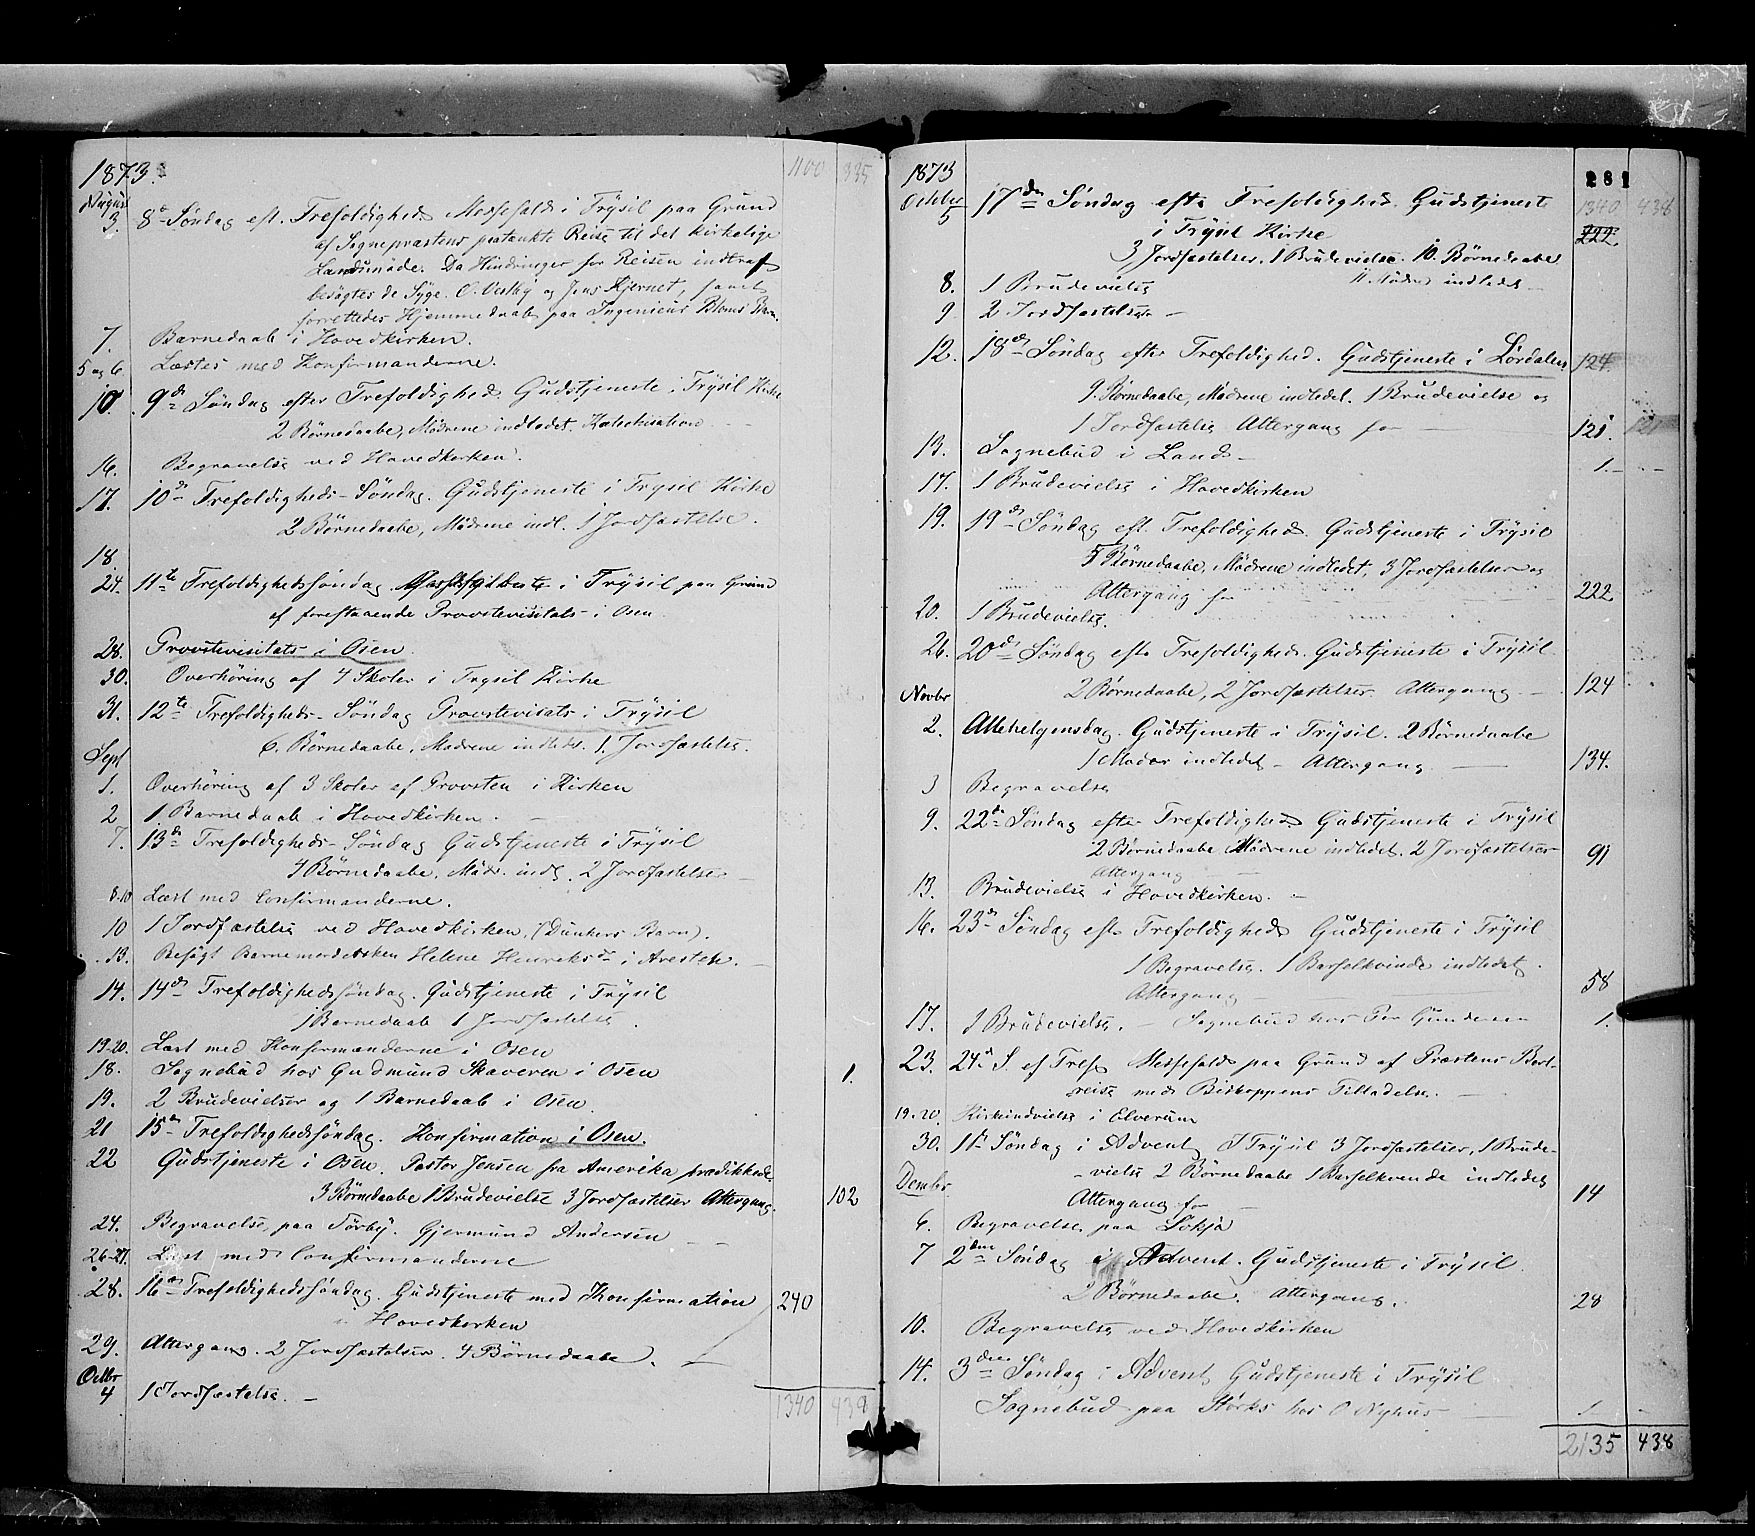 1873.
1100 335
August
3. 8de Søndag eft. Trefoldighed. Messefald i Trysil paa Grund
af Sognepræstens paatænkte Reise til det kirkelige
Landsmøde. Da Hindringer for Reisen indtraf
besøgtes de Syge. O. Vestby og Jens Hjernet, samt
forrettedes Hjemmedaab paa Ingeniør Bloms Barn.
7. Barnedaab i Hovedkirken.
5 og 6. Læstes med Konfirmanderne.
10. 9de Søndag efter Trefoldighed. Gudstjeneste i Trysil Kirke
2 Børnedaabe, Mødrene indledet. Katechisation
16. Begravelse ved Hovedkirken.
17. 10de Trefoldigheds-Søndag. Gudstjeneste i Trysil Kirke
2 Børnedaabe, Mødrene indl. 1 Jordfæstelse.
18
24. 11te Trefoldighedssøndag. i Trysil paa Grund
af forestaaende Provstevisitats i Osen.
28. Provstevisitats i Osen.
30. Overhøring af 4 Skoler i Trysil Kirke
31. 12te Trefoldigheds-Søndag Provstevisats i Trysil
6. Børnedaabe, Mødrene indleds. 1. Jordfæstelse.
Sept
1. Overhøring af 3 Skoler af Provsten i Kirken
2 1 Barnedaab i Hovedkirken.
7. 13de Trefoldigheds-Søndag Gudstjeneste i Trysil
4 Børnedaabe, Mødr. indl. 2 Jordfæstelser
8-10 Læst med Confirmanderne.
10 1 Jordfæstelse ved Hovedkirken. (Dunkers Barn).
13. Besøgt Barnemordersken Helene Henriksdr i Aresten.
14. 14de Trefoldighedssøndag. Gudstjeneste i Trysil
1 Barnedaab 1 Jordfæstelse.
19-20. Læst med Konfirmanderne i Osen
18. Sognebud hos Gudmund Skaveren i Osen 1.
19. 2 Brudevielser og 1 Barnedaab i Osen.
21 15de Trefoldighedssøndag. Konfirmation i Osen.
22 Gudstjeneste i Osen. Pastor Jensen fra Amerika prædikkede.
3 Børnedaabe 1 Brudevielse 3 Jordfæstelser Altergang. 102
24. Begravelse paa Tørby. Gjermund Andersen
26-27. Læst med Confirmanderne
28. 16de Trefoldighedssøndag. Gudstjeneste med Konfirmation 240
i Hovedkirken
29. Altergang. 2 Jordfæstelser. 4 Børnedaabe.
Octbr
4 1 Jordfæstelse.
1340 439
1873
281
October
5 17de Søndag efter Trefoldighed. Gudstjeneste 1340 438
i Trysil Kirke 222.
3 Jordfæstelser. 1 Brudevielse. 10. Børnedaabe
11 Mødre indledet
8. 1 Brudevielse
9. 2 Jordfæstelser
12. 18de Søndag efter Trefoldighed. Gudstjeneste i Lørdalen 124.
9. Børnedaabe, Mødrene indledet. 1 Brudevielse og
1 Jordfæstelse Altergang for 121. 121
13. Sognebud i Lands 1.
17. 1 Brudevielse i Hovedkirken
19. 19de Søndag eft. Trefoldighed. Gudstjeneste i Trysil
5 Børnedaabe, Mødrene indledet, 3 Jordfæstelser og
Altergang for 222
20. 1 Brudevielse.
26. 20de Søndag efter Trefoldighed. Gudstjeneste i Trysil
2 Børnedaabe, 2 Jordfæstelser Altergang. 124
Novbr
2. Allehelgensdag. Gudstjeneste i Trysil. 2 Børnedaabe
1 Moder indledet – Altergang 134.
3 Begravelse
9. 22de Søndag efter Trefoldighed Gudstjeneste i Trysil
2 Børnedaabe Mødrene indledet. 2 Jordfæstelser 91
Altergang
13. Brudevielse i Hovedkirken.
16. 23de Søndag efter Trefoldighed Gudstjeneste i Trysil
1 Begravelse. 1 Barselkvinde indledet.
Altergang 58
17. 1 Brudevielse. – Sognebud hos Per Gundersen 1.
23. 24de S. ef Tref. Messefald paa Grund af Præstens Bort-
reise med Biskoppens Tilladelse.
19-20. Kirkeindvielse i Elverum
30. 1ste Søndag i Advent I Trysil 3 Jordfæstelser, 1 Brude-
vielse 2 Børnedaabe 1 Barselkvende indledet
Altergang for 14
Dember
6. Begravelse paa
7 2den Søndag i Advent. Gudstjeneste i Trysil.
2 Børnedaabe. Altergang. 28
10. Begravelse ved Hovedkirken
14. 3die Søndag i Advent Gudstjeneste i Trysil
Sognebud paa Størks hos O Nyhus 1
2135 438